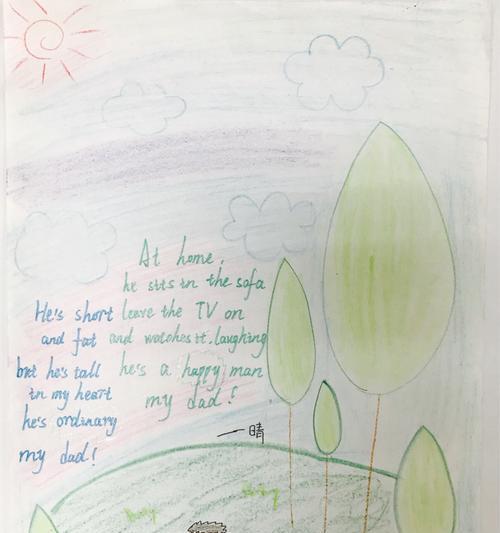 He's short
and fat
but he's tall
in my heart
he's ordinary
my dad!
At home,
he sits in the sofa
leave the TV on
and watches it. laughing
he's a happy man
my dad!
一晴